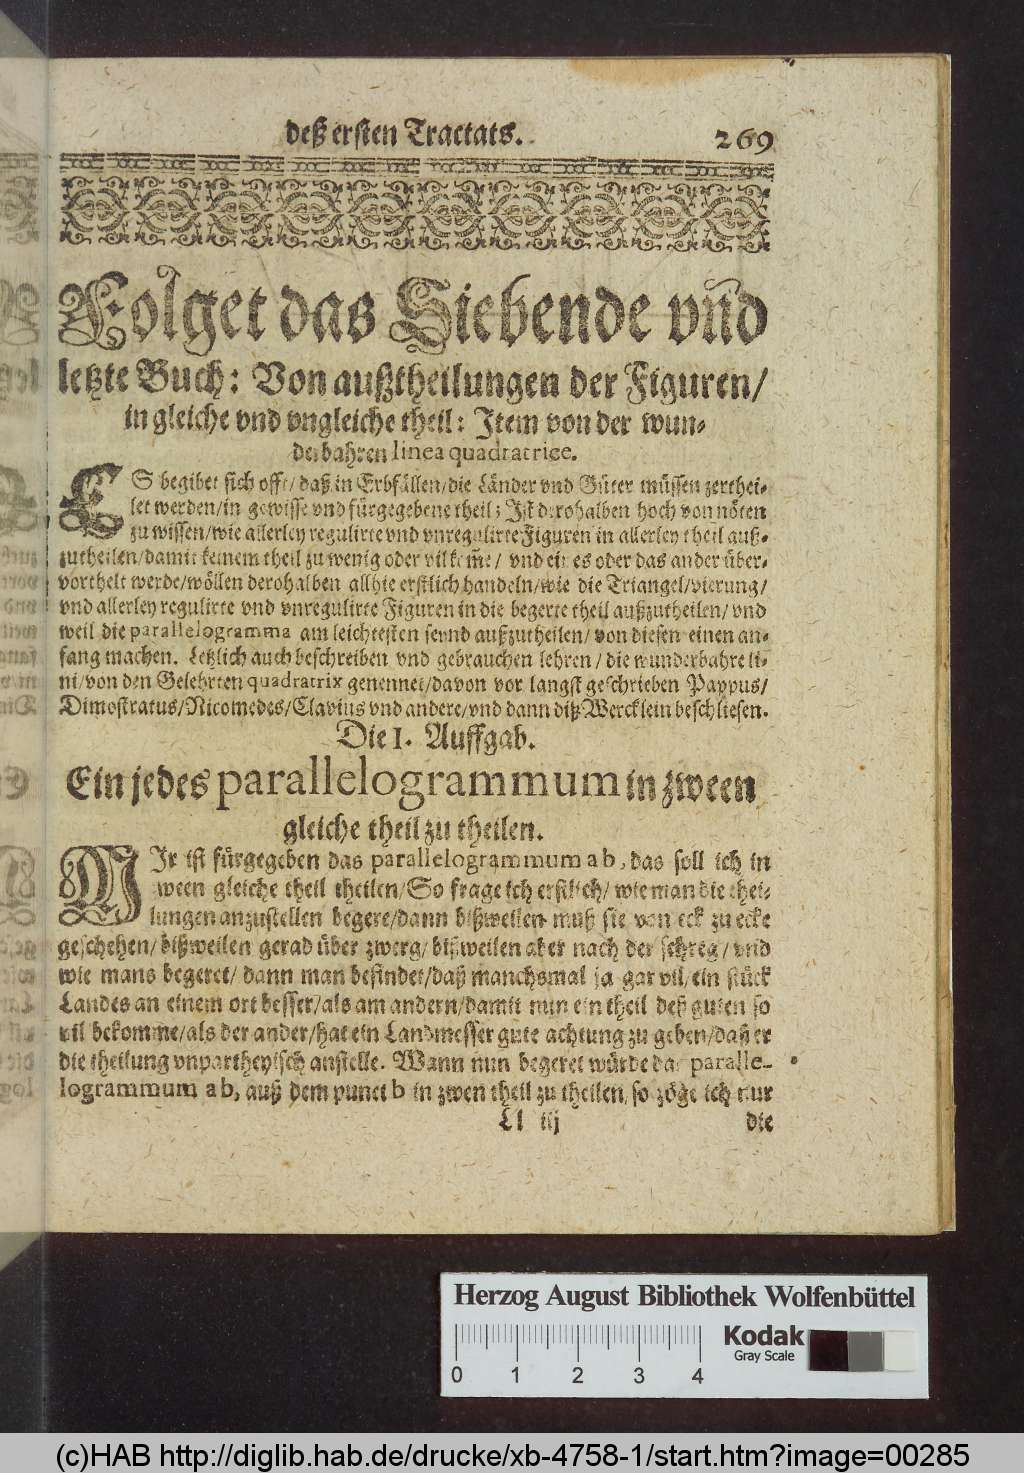 deß ersten Tractats. 269
Folget das Siebende vñd
letzte Buch: Von außtheilungen der Figuren/
in gleiche vnd vngleiche theil: Item von der wun-
derbahren linea quadratrice.
ES begibet sich offt/daß in Erbfällen/die Länder vnd Güter müssen zerthei-
let werden/in gewisse vnd fürgegebene theil; Ist derohalben hoch von nöten
zu wissen/wie allerley regulirte vnd vnregulirte Figuren in allerley theil auß-
zutheilen/damit keinem theil zu wenig oder vil kom̃e/ vnd eines oder das ander über-
vorthelt werde/wöllen derohalben allhie erstlich handeln/wie die Triangel/vierung/
vnd allerley regulirte vnd vnregulirte Figuren in die begerte theil außzutheilen/vnd
weil die parallelogramma am leichtesten seynd außzutheilen/von diesen einen an-
fang machen. Letzlich auch beschreiben vnd gebrauchen lehren/die wunderbahre li-
ni/von den Gelehrten quadratrix genennet/davon vor langst geschrieben Pappus/
Dimostratus/Nicomedes/Clavius vnd andere/vnd dann diß Wercklein beschliesen.
Die 1. Auffgab.
Ein jedes parallelogrammum in zween
gleiche theil zu theilen.
MIr ist fürgegeben das parallelogrammum ab, das soll ich in
zween gleiche theil theilen/So frage ich erstlich/wie man die thei-
lungen anzustellen begere/dann bißweilen muß sie von eck zu ecke
geschehen/bißweilen gerad über zwerg/bißweilen aber nach der schreg/vnd
wie mans begeret/dann man befindet/daß manchsmal ja gar vil/ein stück
Landes an einem ort besser/als am andern/damit nun ein theil deß guten so
vil bekomme/als der ander/hat ein Landmesser gute achtung zu geben/daß er
die theilung vnpartheyisch anstelle. Wann nun begeret würde das paralle-
logrammum ab, auß dem punct b in zwen theil zu theilen, so zöge ich nur
Ll iij die
Herzog August Bibliothek Wolfenbüttel
Kodak
Gray Scale
0 1 2 3 4
(c)HAB http://diglib.hab.de/drucke/xb-4758-1/start.htm?image=00285